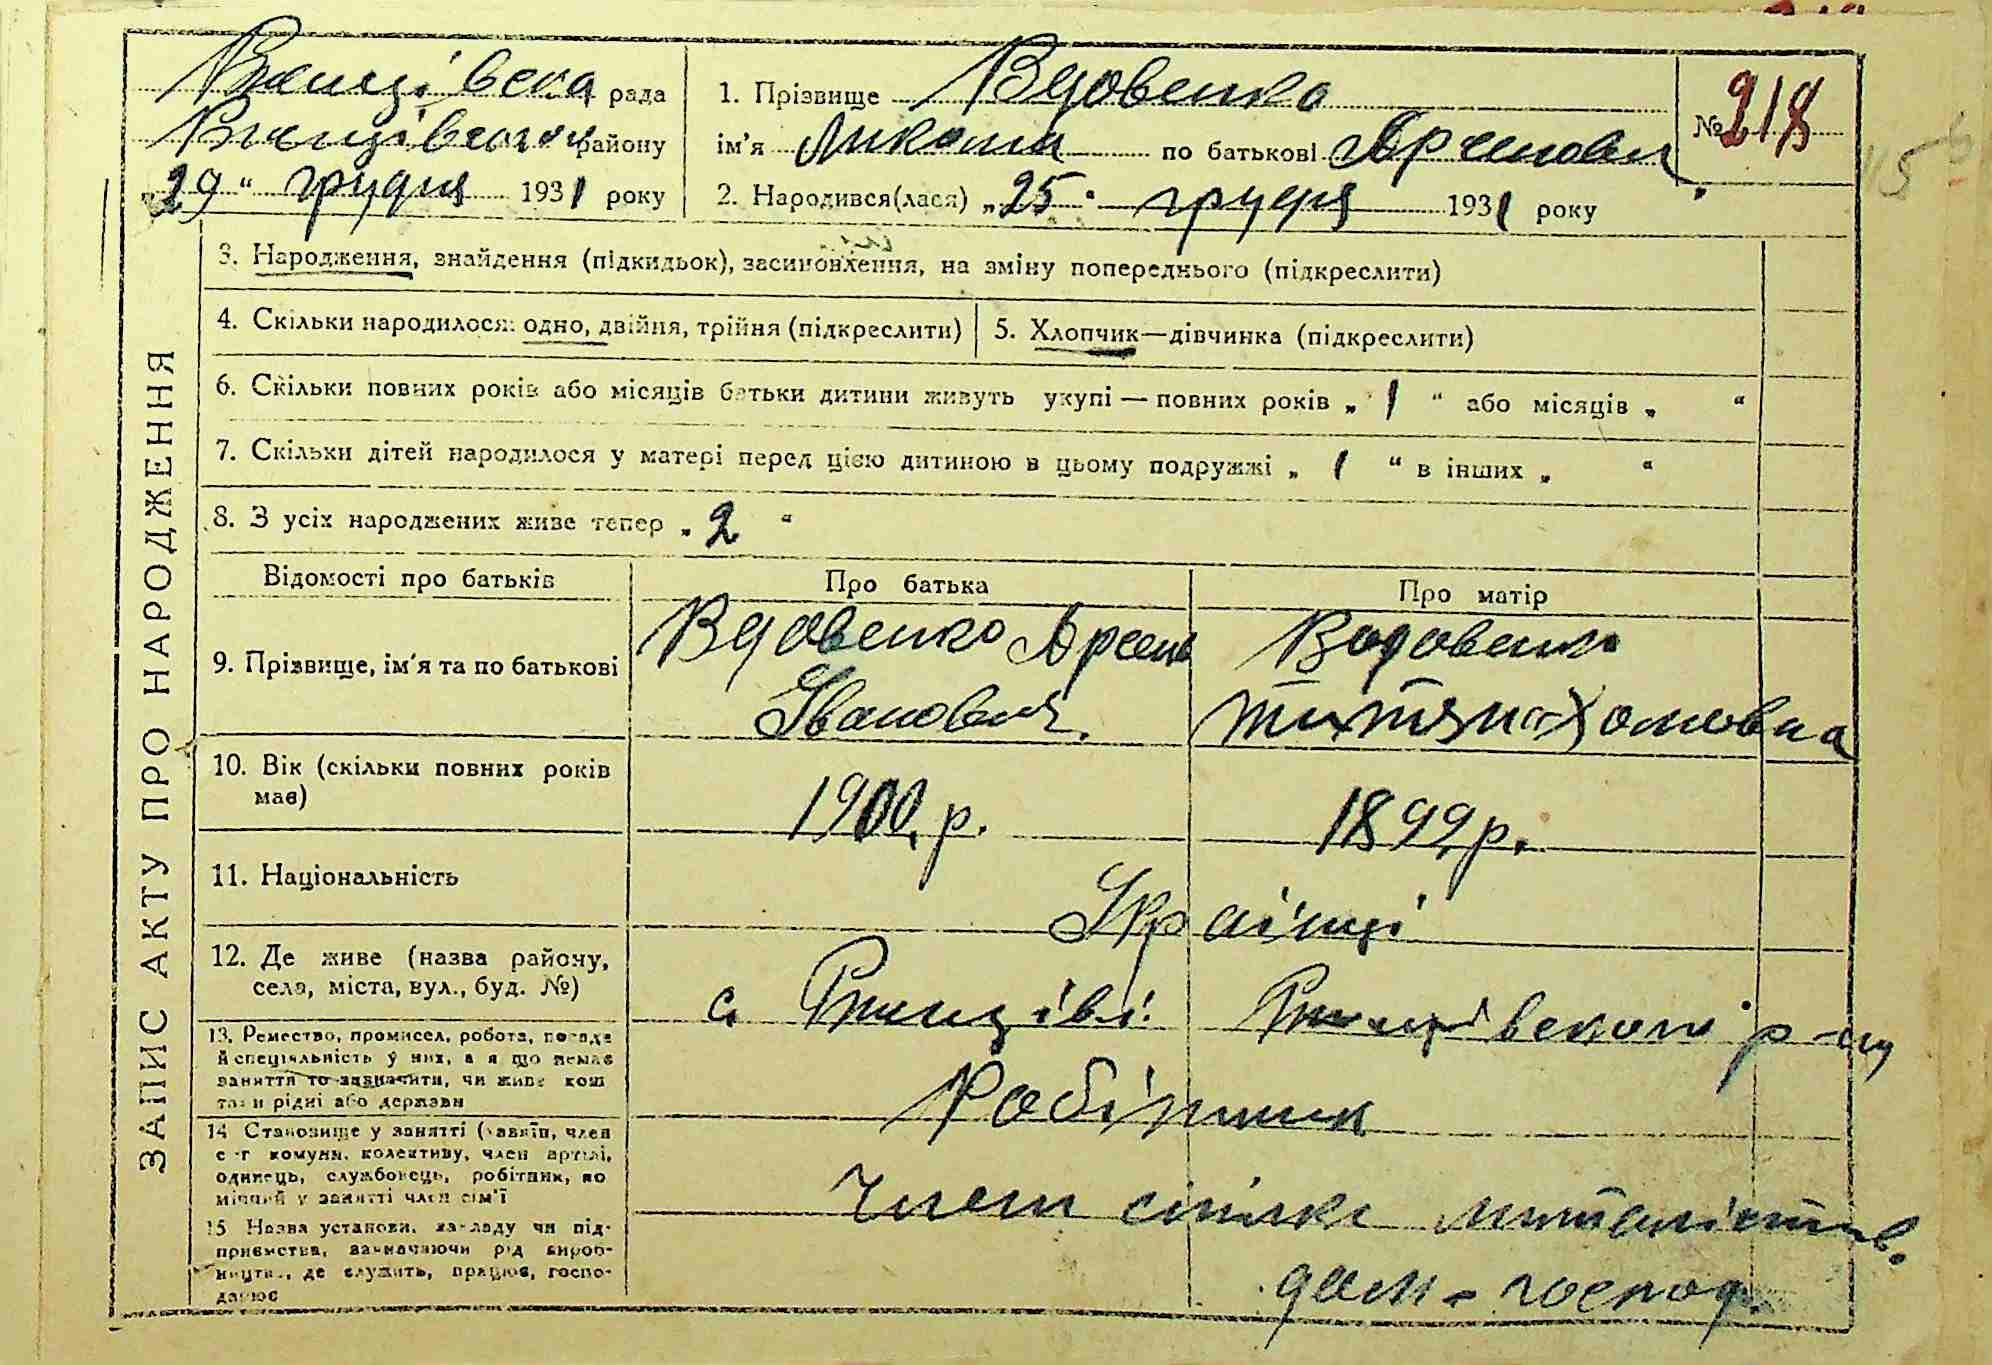 рада
району
„29“ грудня 1931 року
1. Прізвище Вдовенко
ім'я Микола по батькові
2. Народився(лася) „25“ грудня 1931 року
№ 218
ЗАПИС АКТУ ПРО НАРОДЖЕННЯ
3. Народження, знайдення (підкидьок), засиновлення, на зміну попереднього (підкреслити)
4. Скільки народилося: одно, двійня, трійня (підкреслити)
5. Хлопчик—дівчинка (підкреслити)
6. Скільки повних років або місяців батьки дитини живуть укупі — повних років „ 1 “ або місяців „ “
7. Скільки дітей народилося у матері перед цією дитиною в цьому подружжі „ 1 “ в інших „ “
8. З усіх народжених живе тепер „ 2 “
Відомості про батьків
Про батька
Про матір
9. Прізвище, ім'я та по батькові
Вдовенко Арсень
Іванович.
Хомовна
10. Вік (скільки повних років
має)
1900 р.
1899 р.
11. Національність
Українці
12. Де живе (назва району,
села, міста, вул., буд. №)
с. р-ну
13. Ремество, промисел, робота, посада
й спеціяльність у них, а я що немає
заняття то зазначити, чи живе кош
тами рідні або держави
Робітник
14 Становище у занятті (хазяїн, член
с-г комуни, колективу, член артілі,
одинець, службовець, робітник, по
мічний у занятті член сім'ї
Член спілки
15 Назва установи, закладу чи під-
приємства, зазначаючи рід вироб-
ництва, де служить, працює, госпо-
дарює
дом-господ.